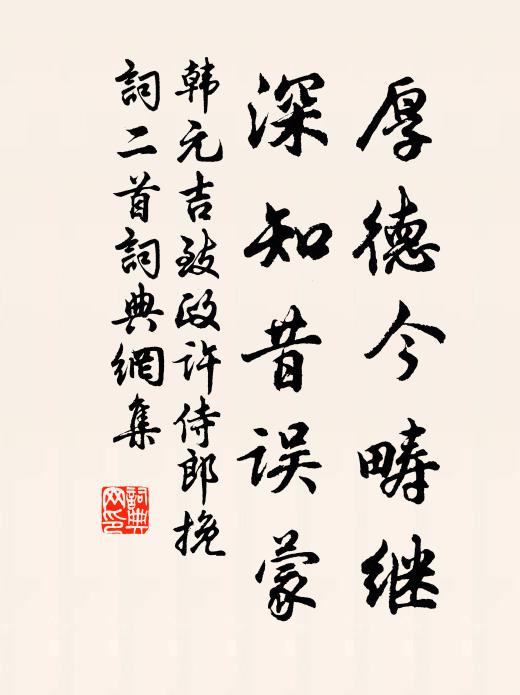 厚德今畴继
深知昔误蒙
韩元吉致政许侍郎挽
词二首词典網集
詞典网印